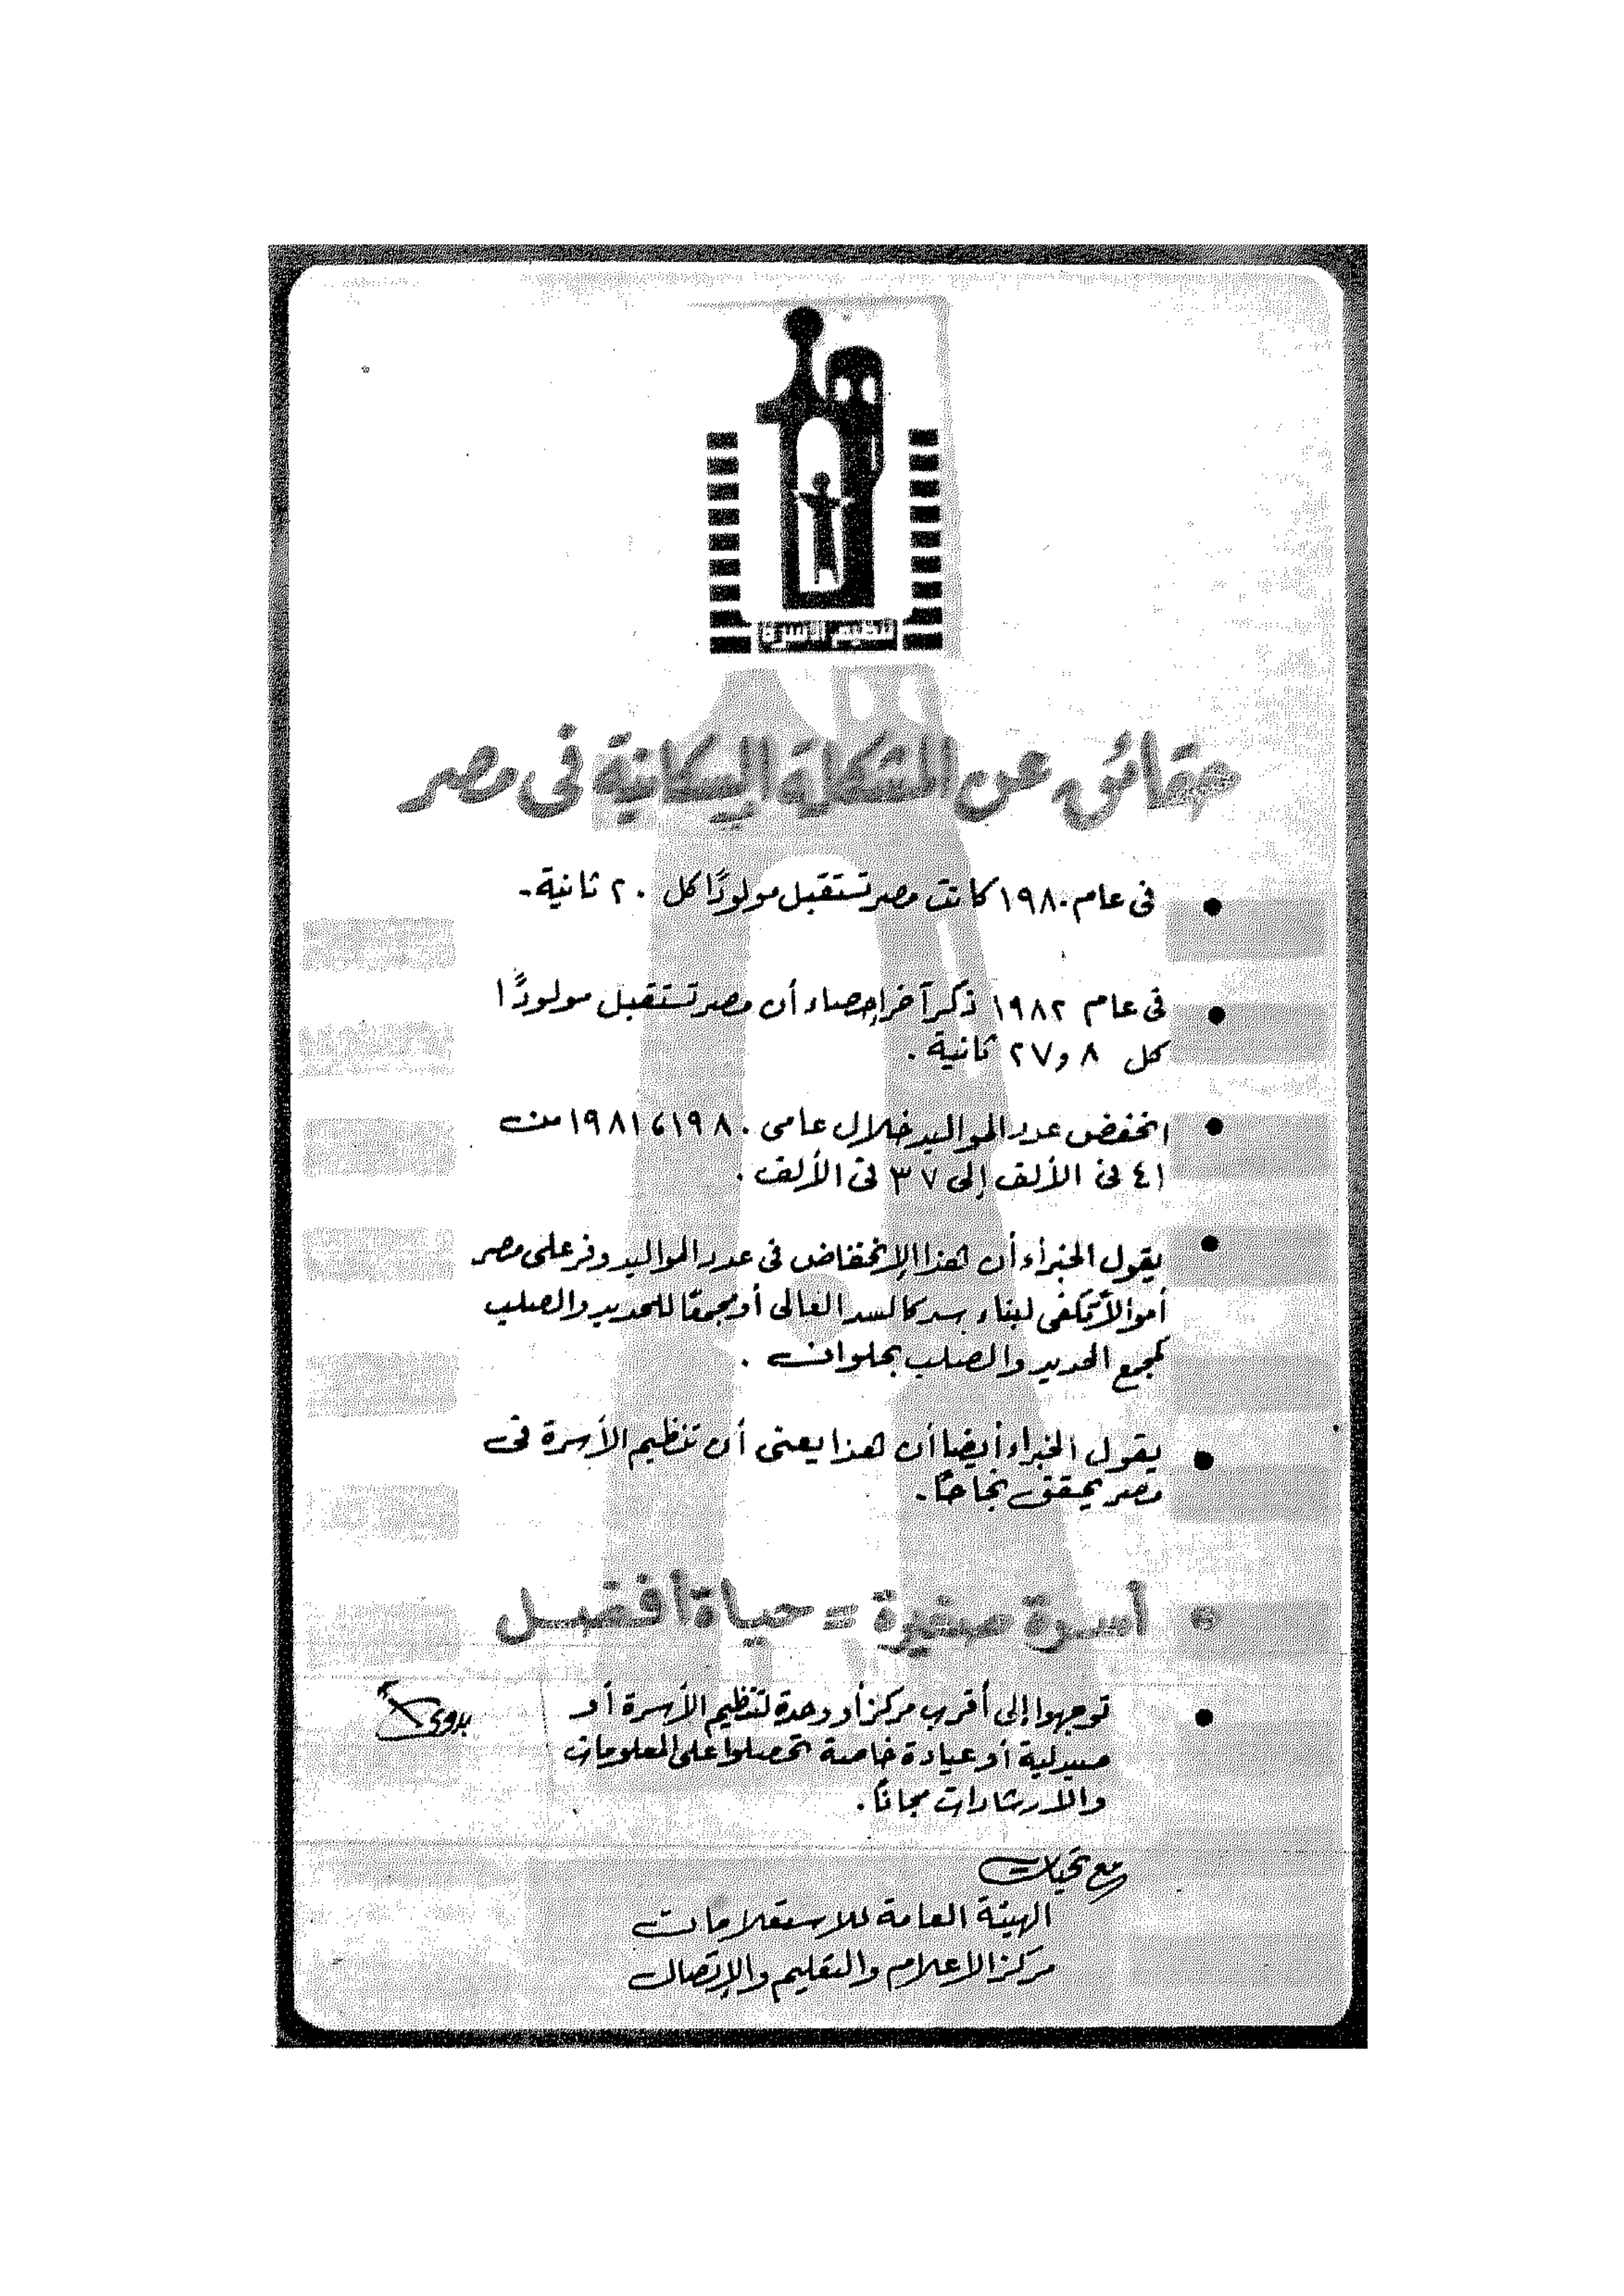 تنظيم الأسرة
حقائق عن المشكلة السكانية فى مصر
• فى عام ١٩٨٠ كانت مصر تستقبل مولودًا كل ٢٠ ثانية.
• فى عام ١٩٨٢ ذكر آخر إحصاء أن مصر تستقبل مولودًا
كل ٨ و٢٧ ثانية.
• انخفض عدد المواليد خلال عامى ١٩٨٠، ١٩٨١ من
٤١ فى الألف إلى ٣٧ فى الألف.
• يقول الخبراء أن هذا الإنخفاض فى عدد المواليد وفر على مصر
أموالاً تكفى لبناء سد كالسد العالى أو مجمعًا للحديد والصلب
كمجمع الحديد والصلب بحلوان.
• يقول الخبراء أيضا أن هذا يعنى أن تنظيم الأسرة فى
مصر يحقق نجاحًا.
• أسرة صغيرة = حياة أفضل
• توجهوا إلى أقرب مركز أو وحدة لتنظيم الأسرة أو
صيدلية أو عيادة خاصة تحصلوا على المعلومات
والارشادات مجانًا.
بدوى
مع تحيات
الهيئة العامة للاستعلامات
مركز الاعلام والتعليم والإتصال